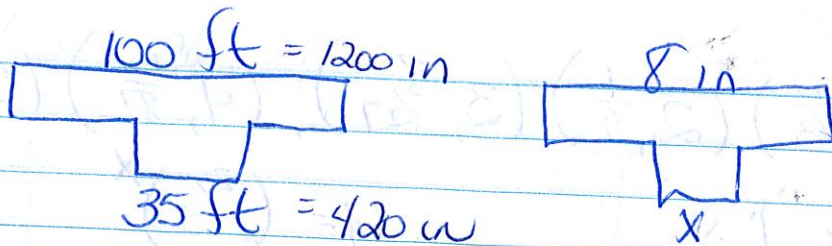 100 ft = 1200 in
8 in
35 ft = 420 in
X